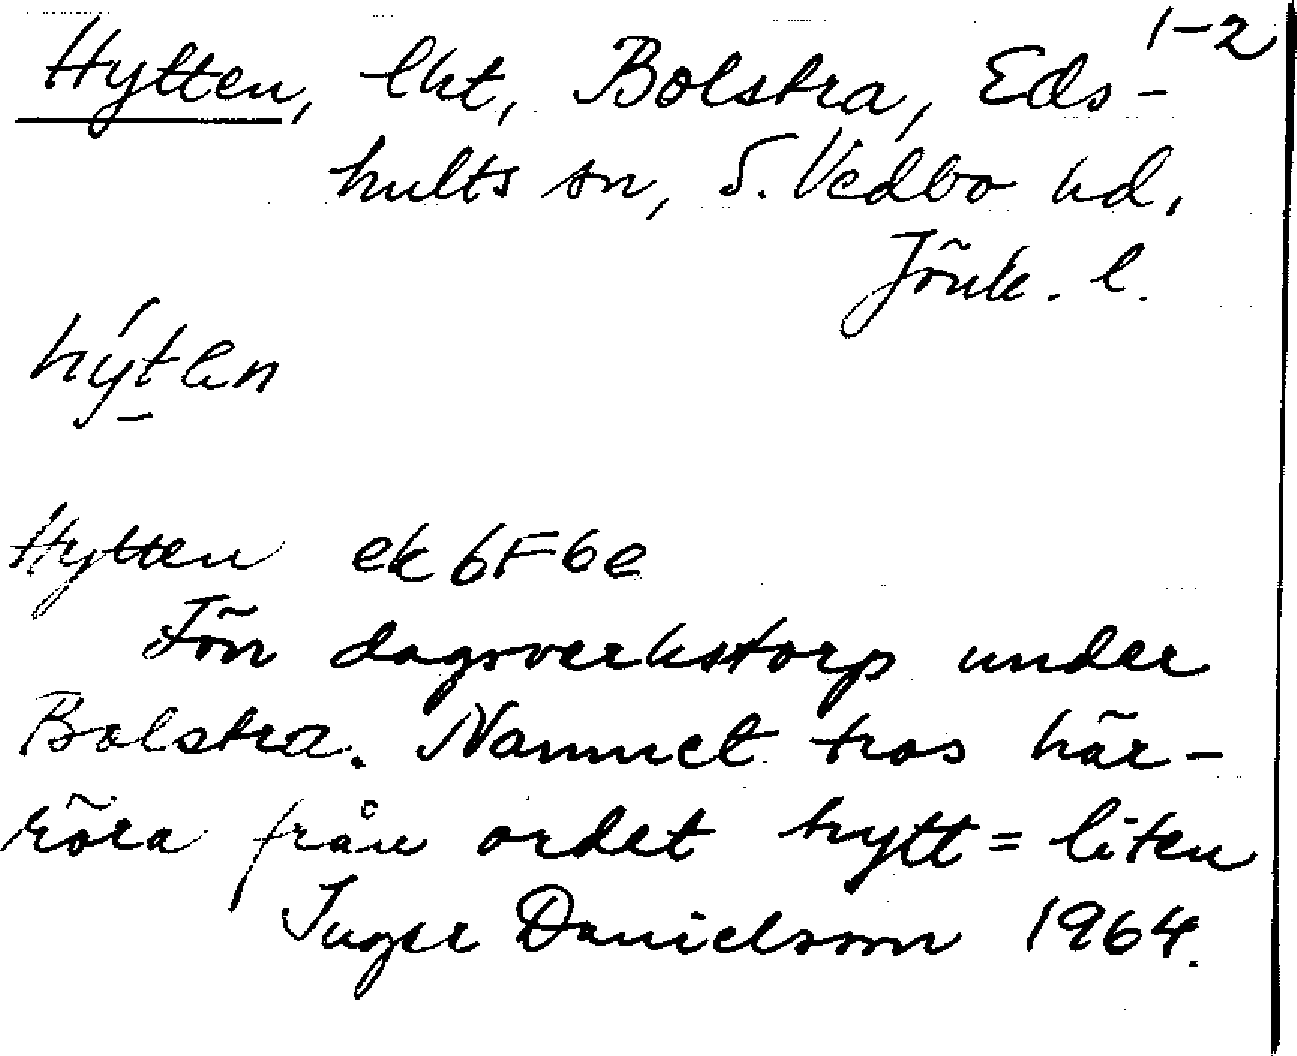 1-2
Hytten, lht, Bolstra, Eds-
hults sn, S. Vedbo hd,
Jönk. l.
Hytten ek 6F6e
Förr dagsverkstorp under
Bolstra. Namnet tros här-
röra från ordet hytt = liten
Inger Danielsson 1964.